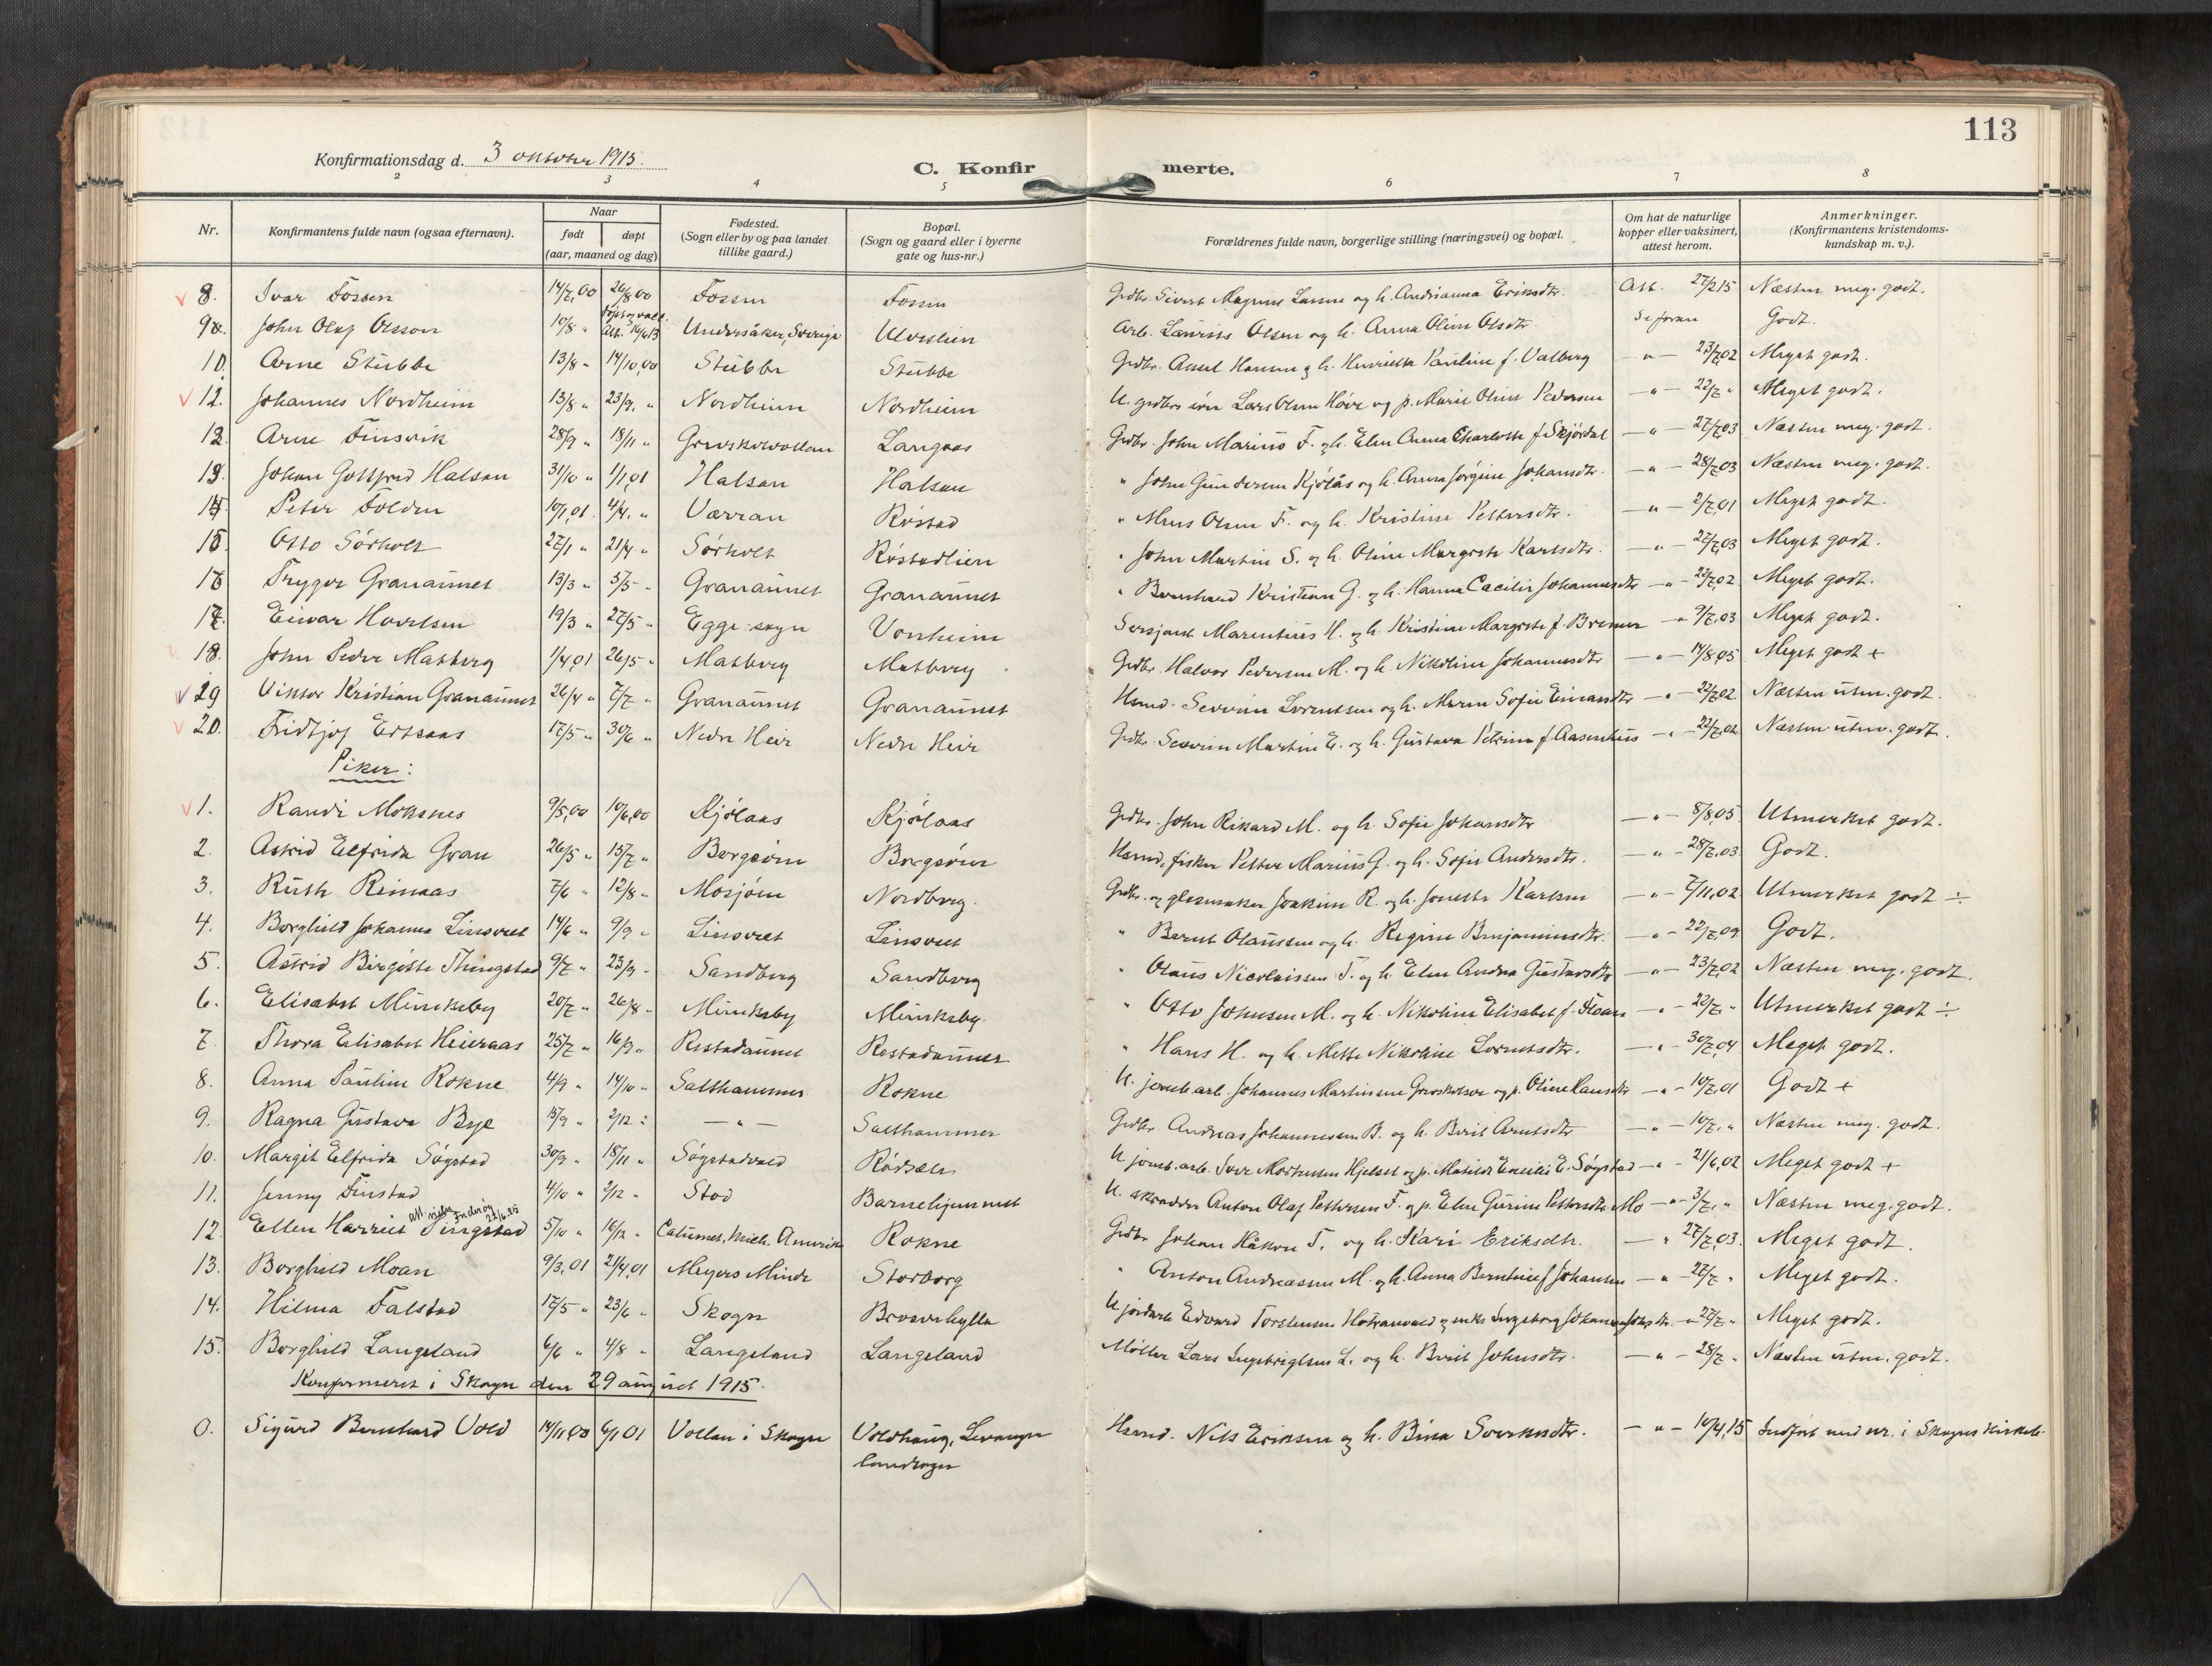 113
Konfirmationsdag d. 3 oktober 1915.
C. Konfirmerte.
2 3 4 5 6 7 8
Nr.
Konfirmantens fulde navn (ogsaa efternavn).
Naar
født døpt
(aar, maaned og dag)
Fødested.
(Sogn eller by og paa landet
tillike gaard.)
Bopæl.
(Sogn og gaard eller i byerne
gate og hus-nr.)
Forældrenes fulde navn, borgerlige stilling (næringsvei) og bopæl.
Om hat de naturlige
kopper eller vaksinert,
attest herom.
Anmerkninger.
(Konfirmantens kristendoms-
kundskap m. v.).
8. Ivar Fossen 14/7,00 26/8 00 Fossen Fossen Grdbr. Sivert Magnus Larsen og h. Andrianna Eriksdtr. Att. 27/2 15 Næsten meg. godt.
9. John Olaf Olsson 10/8 " Att. 16/6 13 Undersåker, Sverige Ulveslien Arb. Laurits Olsen og h. Anna Oline Olsdtr Godt.
10. Arne Stubbe 13/8 " 14/10,00 Stubbe Stubbe Grdbr. Hansen og h. Henriette Pauline f. Valberg — " — 23/7,02 Meget godt.
Johannes Nordheim 13/8 " 23/9, " Nordheim Nordheim U. grdbrs søn Lars Olsen Høve og p. Marie Oline Pedersen — " — 22/7 " Meget godt.
12. Arne Finsvik 28/9 " 18/11 " Grevskovvollan Langaas Grdbr. John Marius F. og h. Elen Anna Charlotte f. Skjórdal — " — 27/7,03 Næsten meg. godt.
13. Johan Gottfred Halsan 31/10 " 1/1,01 Halsan Halsan " John Gundersen Kjólås og h. Anna Jørgine Johansdtr. — " — 28/7,03 Næsten meg. godt.
14 Peter Folden 10/1,01 4/4. " Værran Róstad " Olsen F. og h. Kristine Pettersdtr. — " — 2/7,01 Meget godt.
15 Otto Sórholt 27/1 " 21/4 " Sórholt Róstadlien " John Martin S. og h. Oline Margrete Karlsdtr. — " — 27/7,03 Meget godt.
16 Trygve Granaunet 13/3 " 5/5 " Granaunet Granaunet " Bernhard Kristian G. og h. Hanna Cecilie Johannesdtr — " — 22/7,02 Meget godt.
17. Einar Hovelsen 19/3 " 27/5 " Egge sogn Vonheim Sersjant Marentius H. og h. Kristine Margrete f. Bremer — " 9/7,03 Meget godt.
18. John Peder Matberg 1/4,01 26/5 " Matberg Matberg Grdbr. Halvor Pedersen M. og h. Nikoline Johannesdtr — " — 14/8,05 Meget godt +
Viktor Kristian Granaunet 26/4 " 7/7 " Granaunet Granaunet Husmd. Severin Lorentsen og h. Maren Sofie Einarsdtr — " — 22/7,02 Næsten utm. godt.
20. Fridtjof Ertsaas 17/5 " 30/6 " Nedre Heir Nedre Heir Grdbr. Severin Martin E. og h. Gustava Petrine f. Aasenhus — " — 22/7,02 Næsten utm. godt.
Piker:
1. Randi Moksnes 9/5,00 10/6,00 Kjólaas Kjólaas Grdbr. John Rikard M. og h. Sofie Johansdtr — " — 8/8,05 Utmerket godt.
2. Astrid Elfrida Gran 26/5 " 15/7 " Borgsóren Borgsóren Husmd, fisker Petter Marius G. og h. Sofie Andersdtr. — " — 28/7,03 Godt.
3. Ruth Reinaas 7/6 " 12/8 " Mosjøen Nordberg. Grdbr. og glasmaker Joakim R. og h. Jonette Karlsen — " — 7/11,02 Utmerket godt ÷
4. Borghild Johanna Linsvret 14/6 " 9/9 " Linsvret Linsvret " Bernt Olaussen og h. Regine Benjaminsdtr. — " — 22/7,09 Godt.
5. Astrid Birgitte Thingstad 9/7 " 23/9 " Sandberg Sandberg " Olaus Nicolaissen T. og h. Elen Andrea Gustavsdtr — " — 23/7,02 Næsten meg. godt.
6. Elisabet Munkeby 20/7 " 26/8 " Munkeby Munkeby. " Otto Johnsen M. og h. Nikoline Elisabet f. Floan — " — 22/7 " Utmerket godt ÷
7. Thora Elisabet Heieraas 25/7 " 16/9 " Restadaunet Restadaunet " Hans H. og h. Mette Nikoline Lorentsdtr. — " — 30/7,04 Meget godt.
8. Anna Pauline Rokne 4/9 " 14/10 " Salthammer Rokne U. jernb.arb. Johannes Martinsen og p. Oline Hansdtr — " — 10/7,01 Godt +
9. Ragna Gustava Bye 15/9 " 2/12 " — " — Salthammer Grdbr Andreas Johannesen B. og h. Berit Arntsdtr — " — 10/7, " Næsten meg. godt.
10. Margit Elfrida Søgstad 30/9 " 18/11 " Søgstadvald Ródseler U. jernb.arb. Hjelset og p. Matilde E. Søgstad — " — 21/6,02 Meget godt +
11. Jenny Finstad 4/10 " 2/12 " Stod Barnehjemmet U. skrædder Anton Olaf Pettersen F. og p. Elen Gurine Pettersdtr Mo — " — 3/7, " Næsten meg. godt.
att. Inderøy 22/6 25
12. Ellen Harriet Tingstad 5/10 " 16/12 " Calumet, Mich. Amerika Rokne Grdbr Johan Håkon T. og h. Kari Eriksdtr. — " 27/7,03. Meget godt.
13. Borghild Moan 9/3,01 21/4,01 Meyers Minde Storborg " Anton Andreassen M. og h. Anna Berntine f Johansen — " — 27/7 " Meget godt.
14. Hilma Falstad 17/5 " 23/6 " Skogn Broverhylla U. jordarb Edvard Torstensen Hotranvald og enke Ingeborg — " — 27/7 " Meget godt.
15. Borghild Langeland 6/6 " 4/8 " Langeland Langeland Móller Lars Ingebrigtsen L. og h. Berit Johnsdtr. — " — 28/7 " Næsten utm. godt.
Konfirmeret i Skogn den 29 august 1915.
0. Sigurd Bernhard Vold 14/11,00 6/1 01 Vollan i Skogn Voldhaug, Levanger Husmd. Nils Eriksen og h. Bina Sverkesdtr. — " — 16/4,15 Indført med nr. i Skogns kirkeb.
landsogn